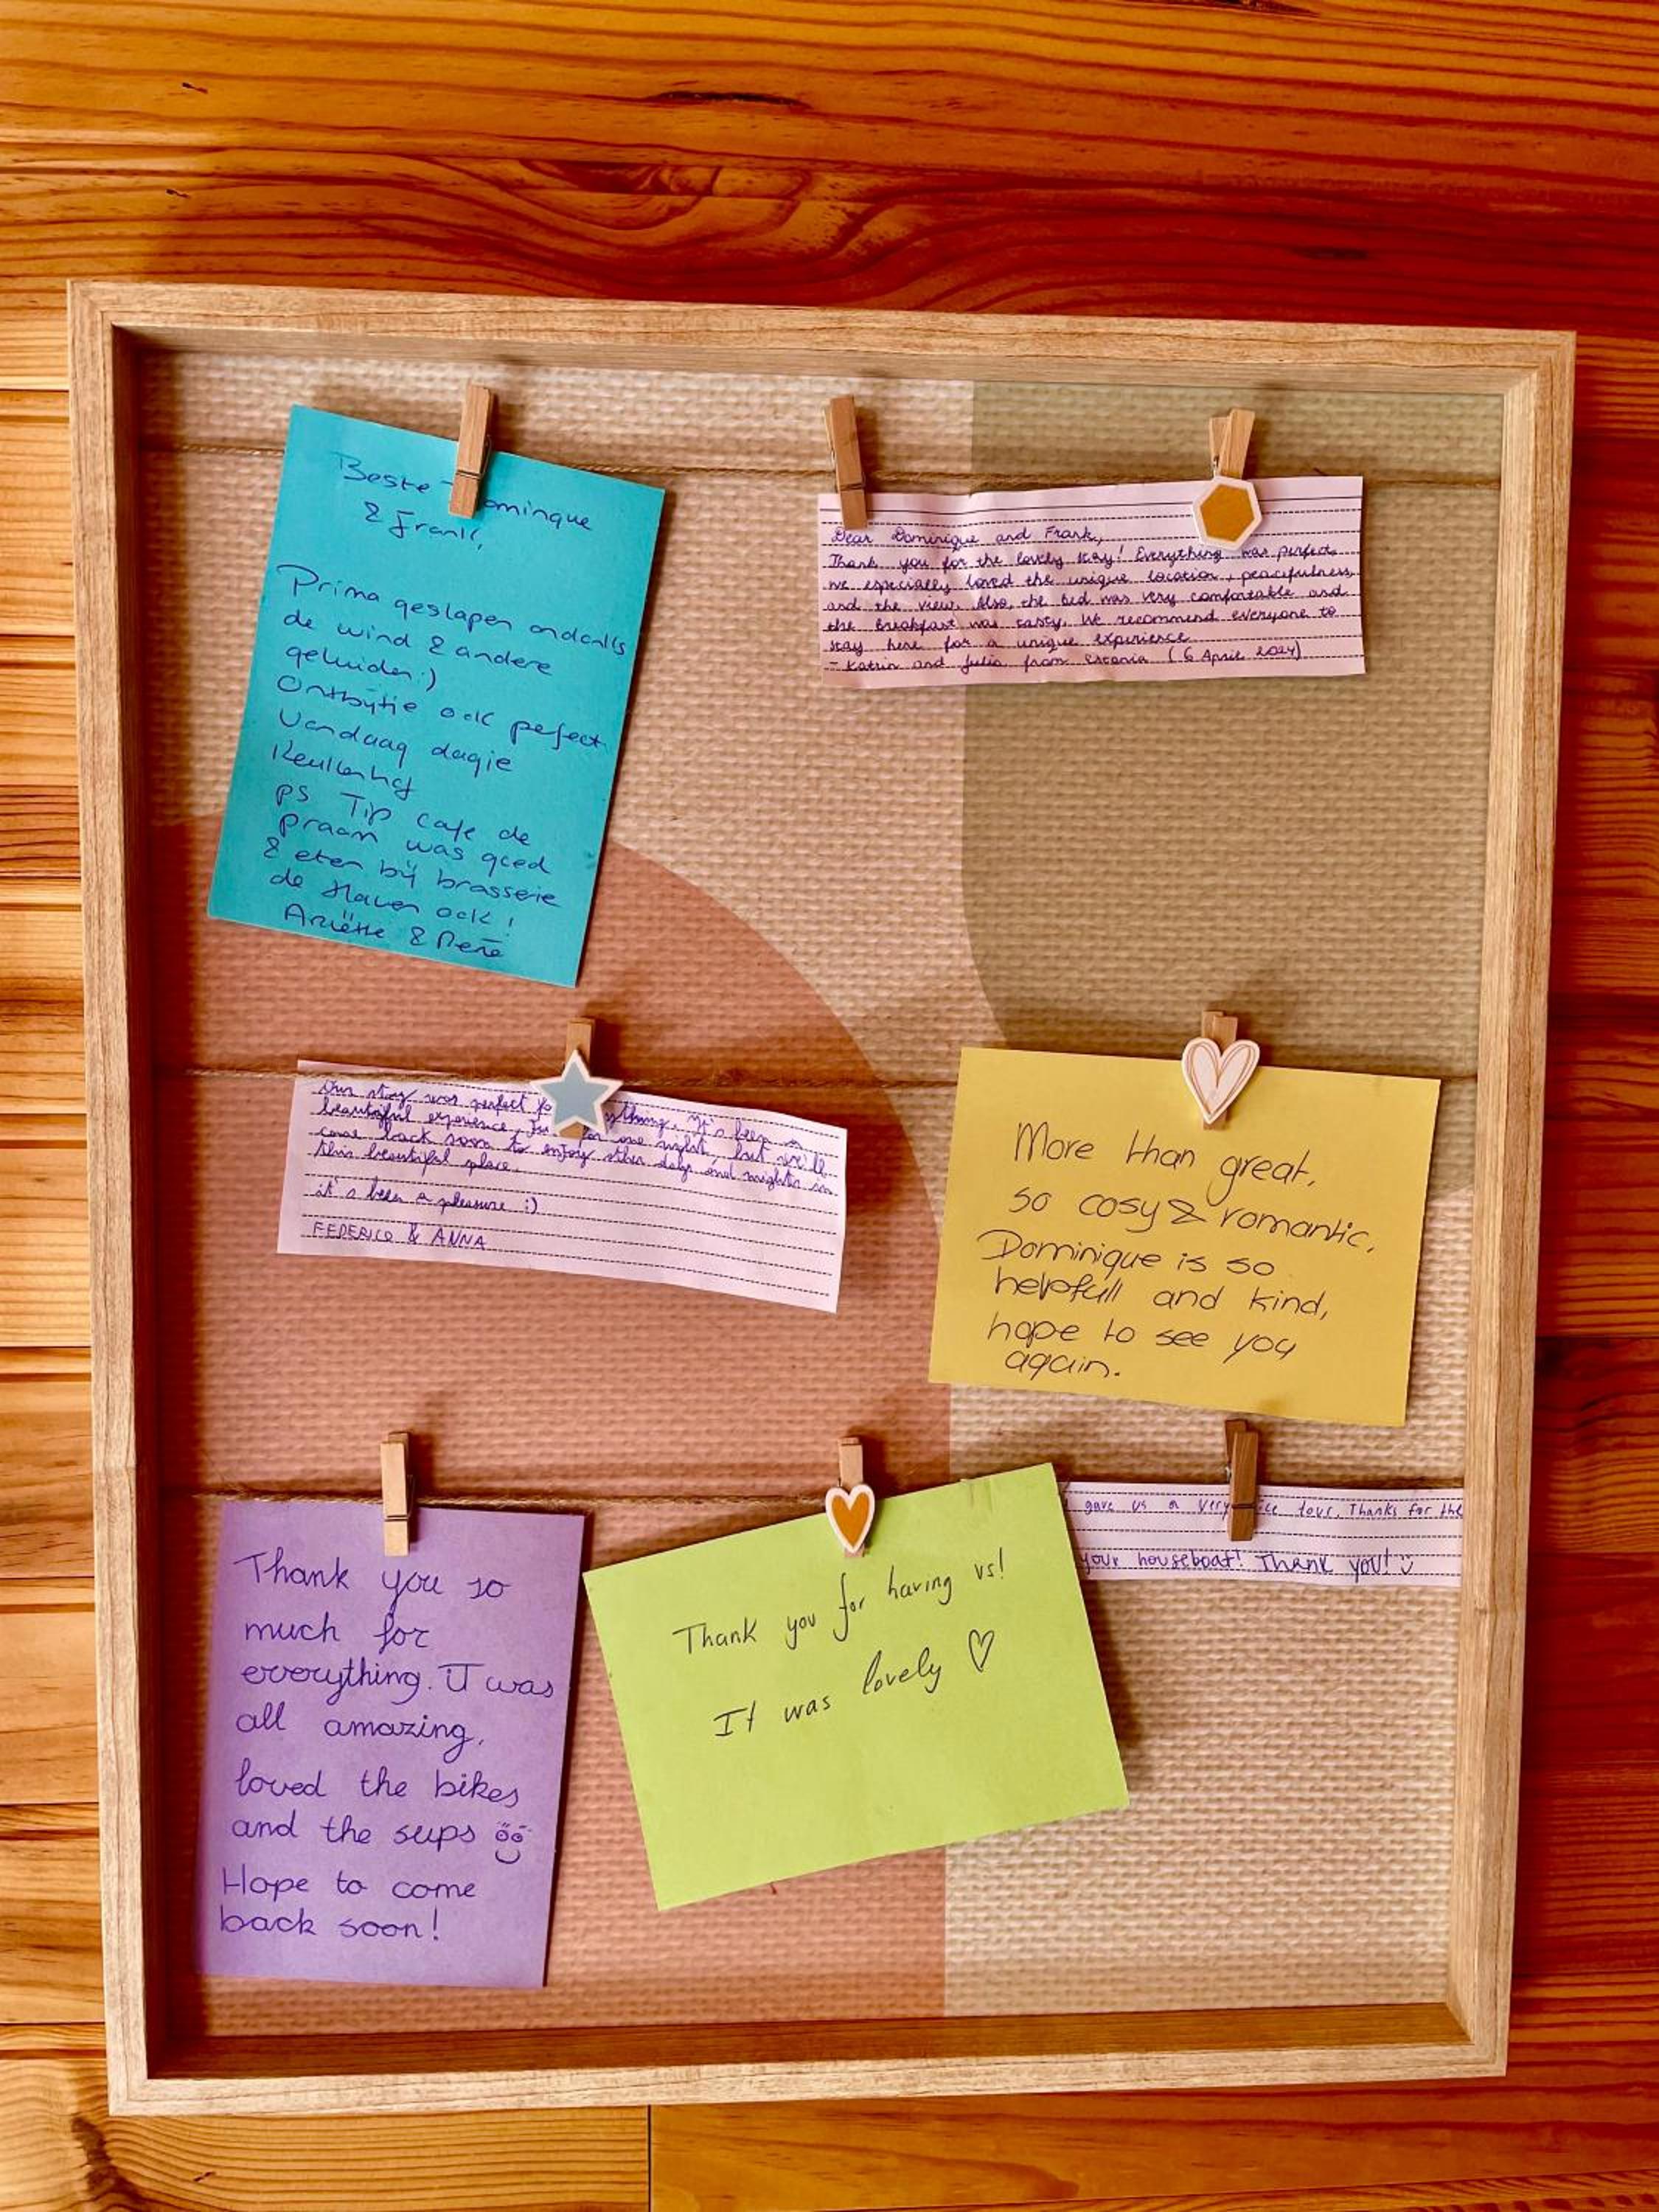 Beste Dominque
& Frank,
Prima geslapen ondanks
de wind & andere
geluiden :)
Ontbijtje ook perfect
Vandaag dagje
Keukenhof
ps Tip cafe de
praam was goed
& eten bij brasserie
de Haven ook!
Ariëtte & René
Dear Dominique and Frank,
Thank you for the lovely stay! Everything was perfect,
we especially loved the unique location, peacefulness,
and the view. Also, the bed was very comfortable and
the breakfast was tasty. We recommend everyone to
stay here for a unique experience
- Katrin and Julia from Estonia (6 April 2024)
Our stay was perfect for everything. It's been a
beautiful experience. for one night, but we'll
come back soon to enjoy other days and nights in
this beautiful place.
it's been a pleasure :)
FEDERICO & ANNA
More than great,
so cosy & romantic.
Dominique is so
helpfull and kind,
hope to see you
again.
Thank you so
much for
everything. iT was
all amazing,
loved the bikes
and the sups
Hope to come
back soon!
Thank you for having us!
It was lovely ♡
gave us a very nice tour. Thanks for the
your houseboat! Thank you! :)